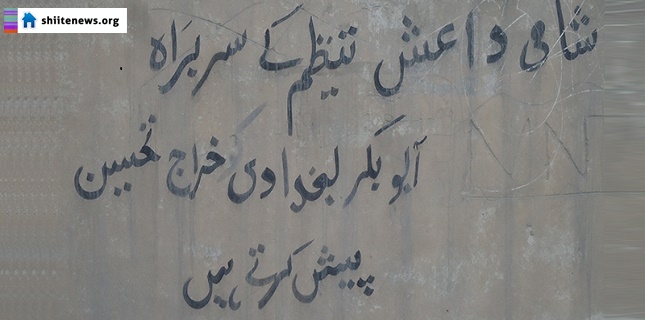 shiitenews.org
شامی داعش تنظیم کے سربراہ
ابو بکر بغدادی کو خراج تحسین
پیش کرتے ہیں